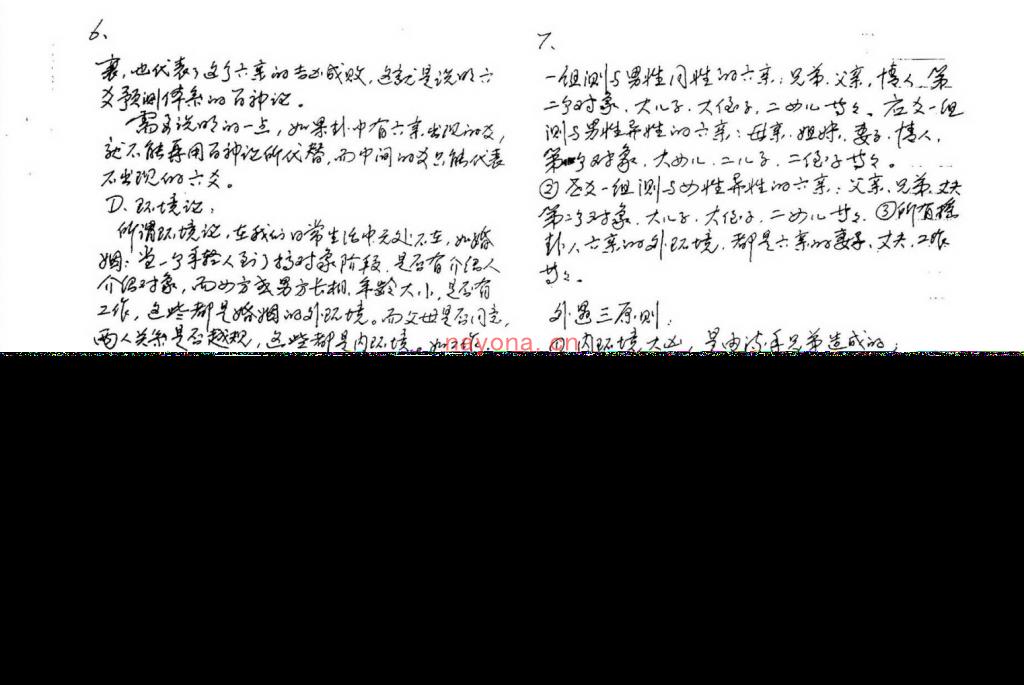 6.
衰,也代表了这个六亲的吉凶成败,这就是说明六
爻预测体系的百神论。
需要说明的一点,如果卦中有六亲出现的爻,
就不能再用百神论所代替,而中间的爻只能代表
不出现的六爻。
D.环境论:
所谓环境论,在我们日常生活中无处不在,如婚
姻:当一个年轻人到了搞对象阶段,是否有介绍人
介绍对象,而女方或男方长相、年龄大小,是否有
工作,这些都是婚姻的外环境。而父母是否同意,
两人关系是否越规,这些都是内环境。如
7.
一组测与男性同性的六亲:兄弟、父亲、情人、第
二个对象、大儿子、大侄子、二女儿等等。应爻一组
测与男性异性的六亲:母亲、姐妹、妻子、情人、
第一个对象、大女儿、二儿子、二侄子等等。
②应爻一组测与女性异性的六亲:父亲、兄弟、丈夫
第二个对象、大儿子、大侄子、二女儿等等。③所有摇
卦人六亲的外环境,都是六亲的妻子、丈夫、工作
等等。
外遇三原则:
①内环境大凶,是由
兄弟造成的;
nayona.cn